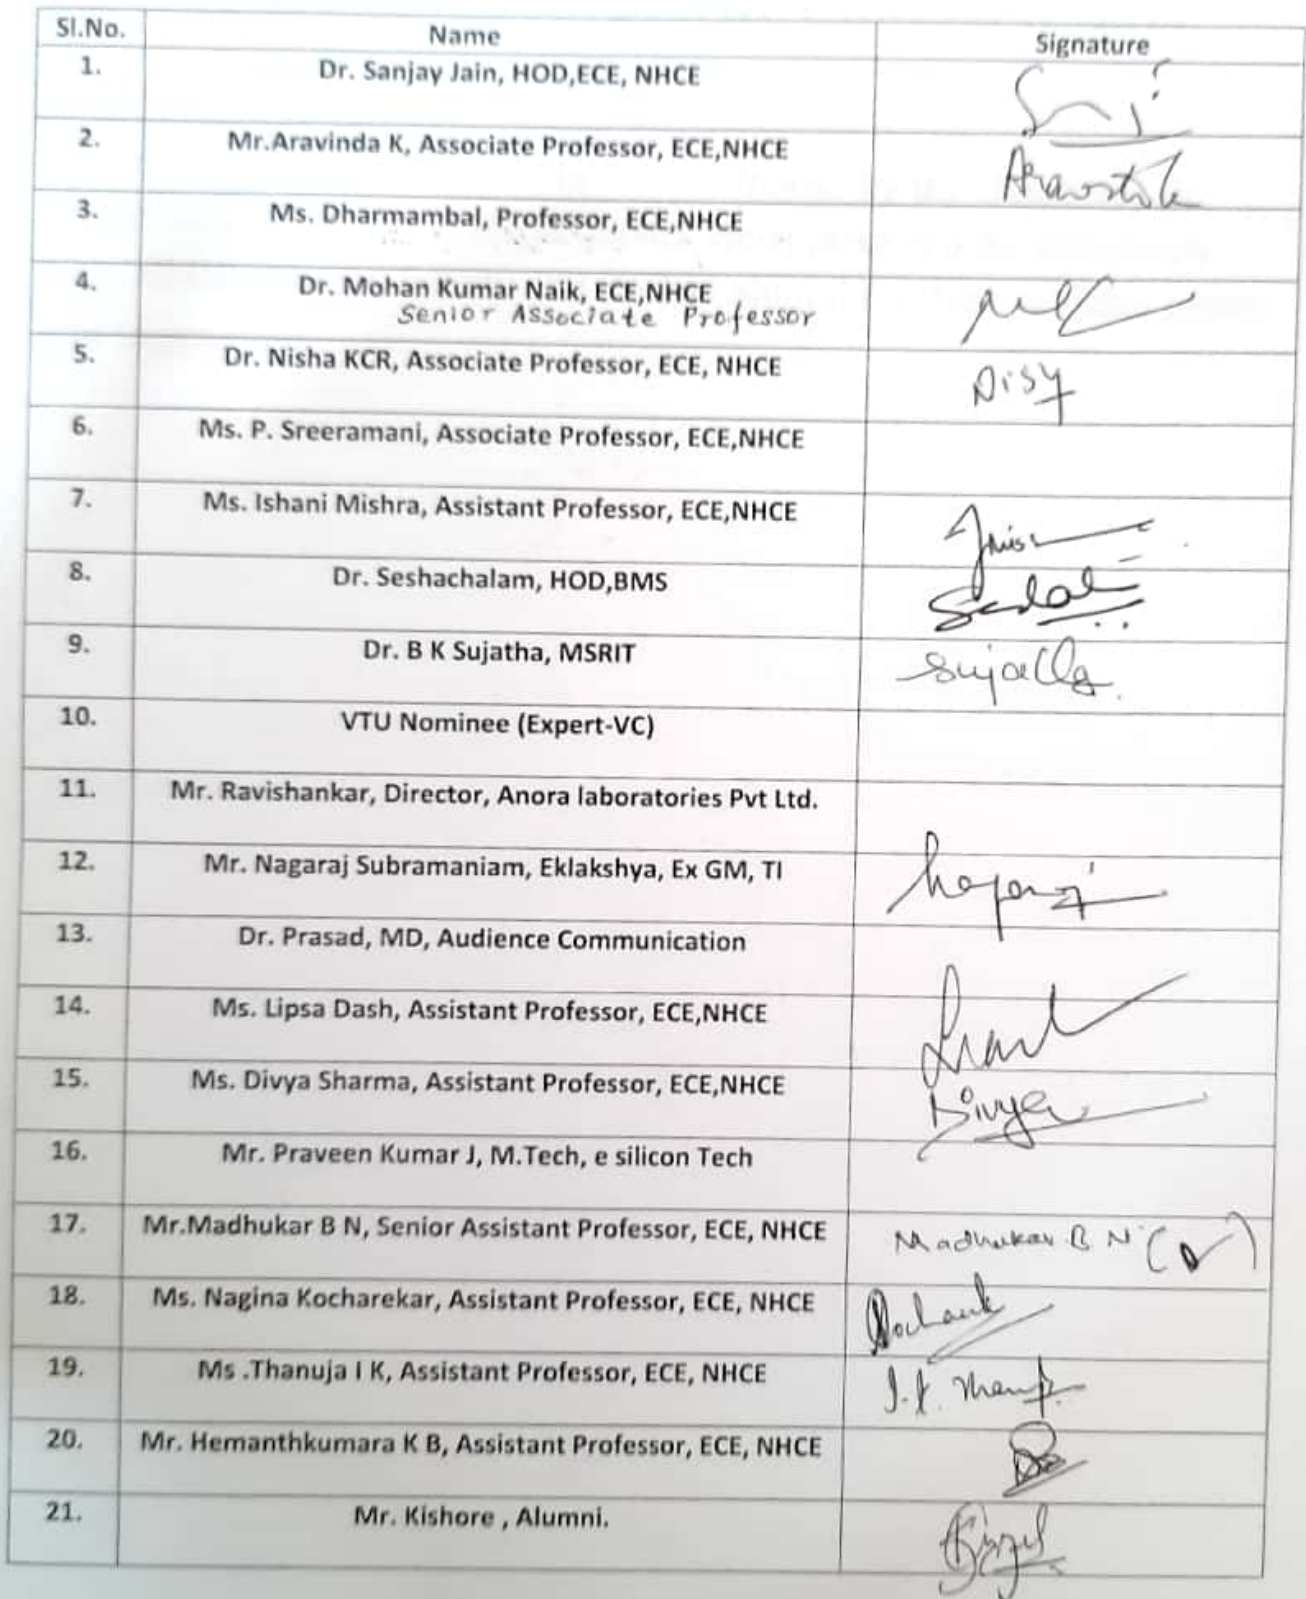 Sl.No. Name Signature
1. Dr. Sanjay Jain, HOD,ECE, NHCE
2. Mr.Aravinda K, Associate Professor, ECE,NHCE
3. Ms. Dharmambal, Professor, ECE,NHCE
4. Dr. Mohan Kumar Naik, ECE,NHCE
Senior Associate Professor
5. Dr. Nisha KCR, Associate Professor, ECE, NHCE
6. Ms. P. Sreeramani, Associate Professor, ECE,NHCE
7. Ms. Ishani Mishra, Assistant Professor, ECE,NHCE
8. Dr. Seshachalam, HOD,BMS
9. Dr. B K Sujatha, MSRIT
10. VTU Nominee (Expert-VC)
11. Mr. Ravishankar, Director, Anora laboratories Pvt Ltd.
12. Mr. Nagaraj Subramaniam, Eklakshya, Ex GM, TI
13. Dr. Prasad, MD, Audience Communication
14. Ms. Lipsa Dash, Assistant Professor, ECE,NHCE
15. Ms. Divya Sharma, Assistant Professor, ECE,NHCE Divya
16. Mr. Praveen Kumar J, M.Tech, e silicon Tech
17. Mr.Madhukar B N, Senior Assistant Professor, ECE, NHCE Madhukar B N
18. Ms. Nagina Kocharekar, Assistant Professor, ECE, NHCE
19. Ms .Thanuja I K, Assistant Professor, ECE, NHCE
20. Mr. Hemanthkumara K B, Assistant Professor, ECE, NHCE
21. Mr. Kishore , Alumni.